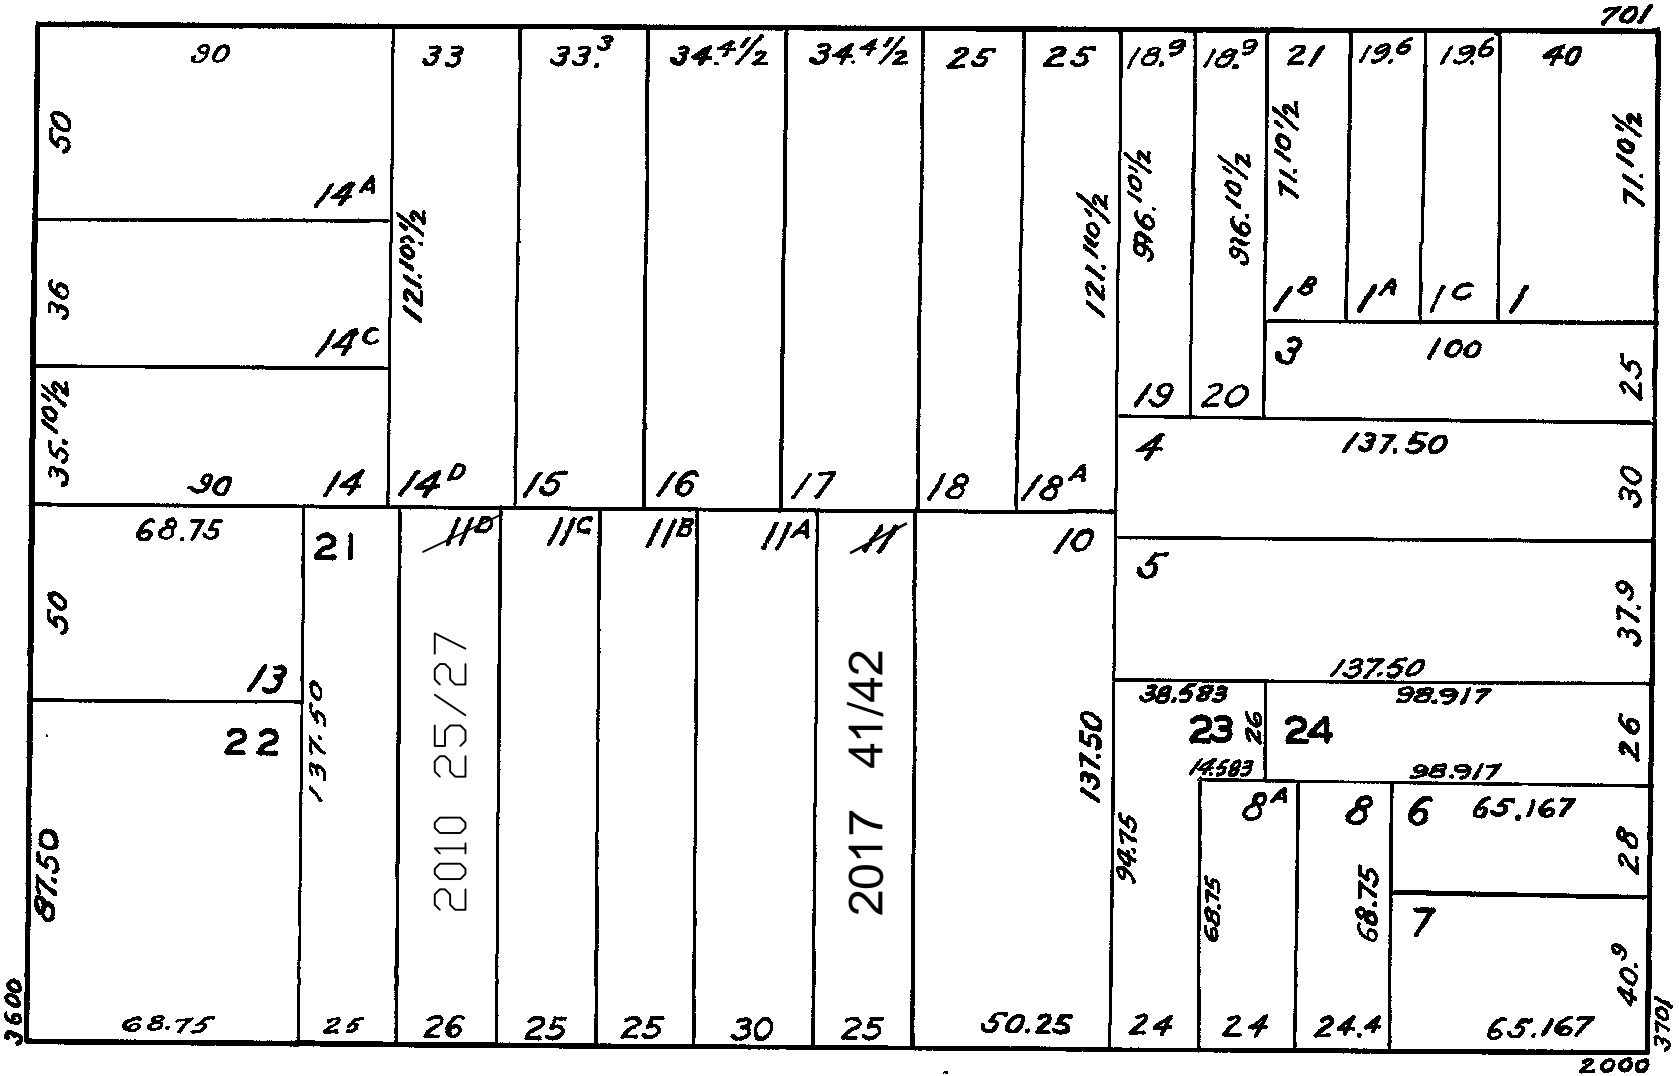 701
90
33
33.3
34.4½
34.4½
25
25
18.9
18.9
21
19.6
19.6
40
50
14A
121.10½
121.10½
96.10½
96.10½
71.10½
71.10½
36
14C
1B
1A
1C
1
35.10½
90
14
14D
15
16
17
18
18A
19
20
3
100
25
4
137.50
30
68.75
21
11D
11C
11B
11A
11
10
5
37.9
137.50
50
13
137.50
2010 25/27
2017 41/42
137.50
38.583
98.917
23
26
24
26
14.583
98.917
22
87.50
94.75
8A
68.75
8
68.75
6
65.167
28
7
40.9
3600
68.75
25
26
25
25
30
25
50.25
24
24
24.4
65.167
3701
2000